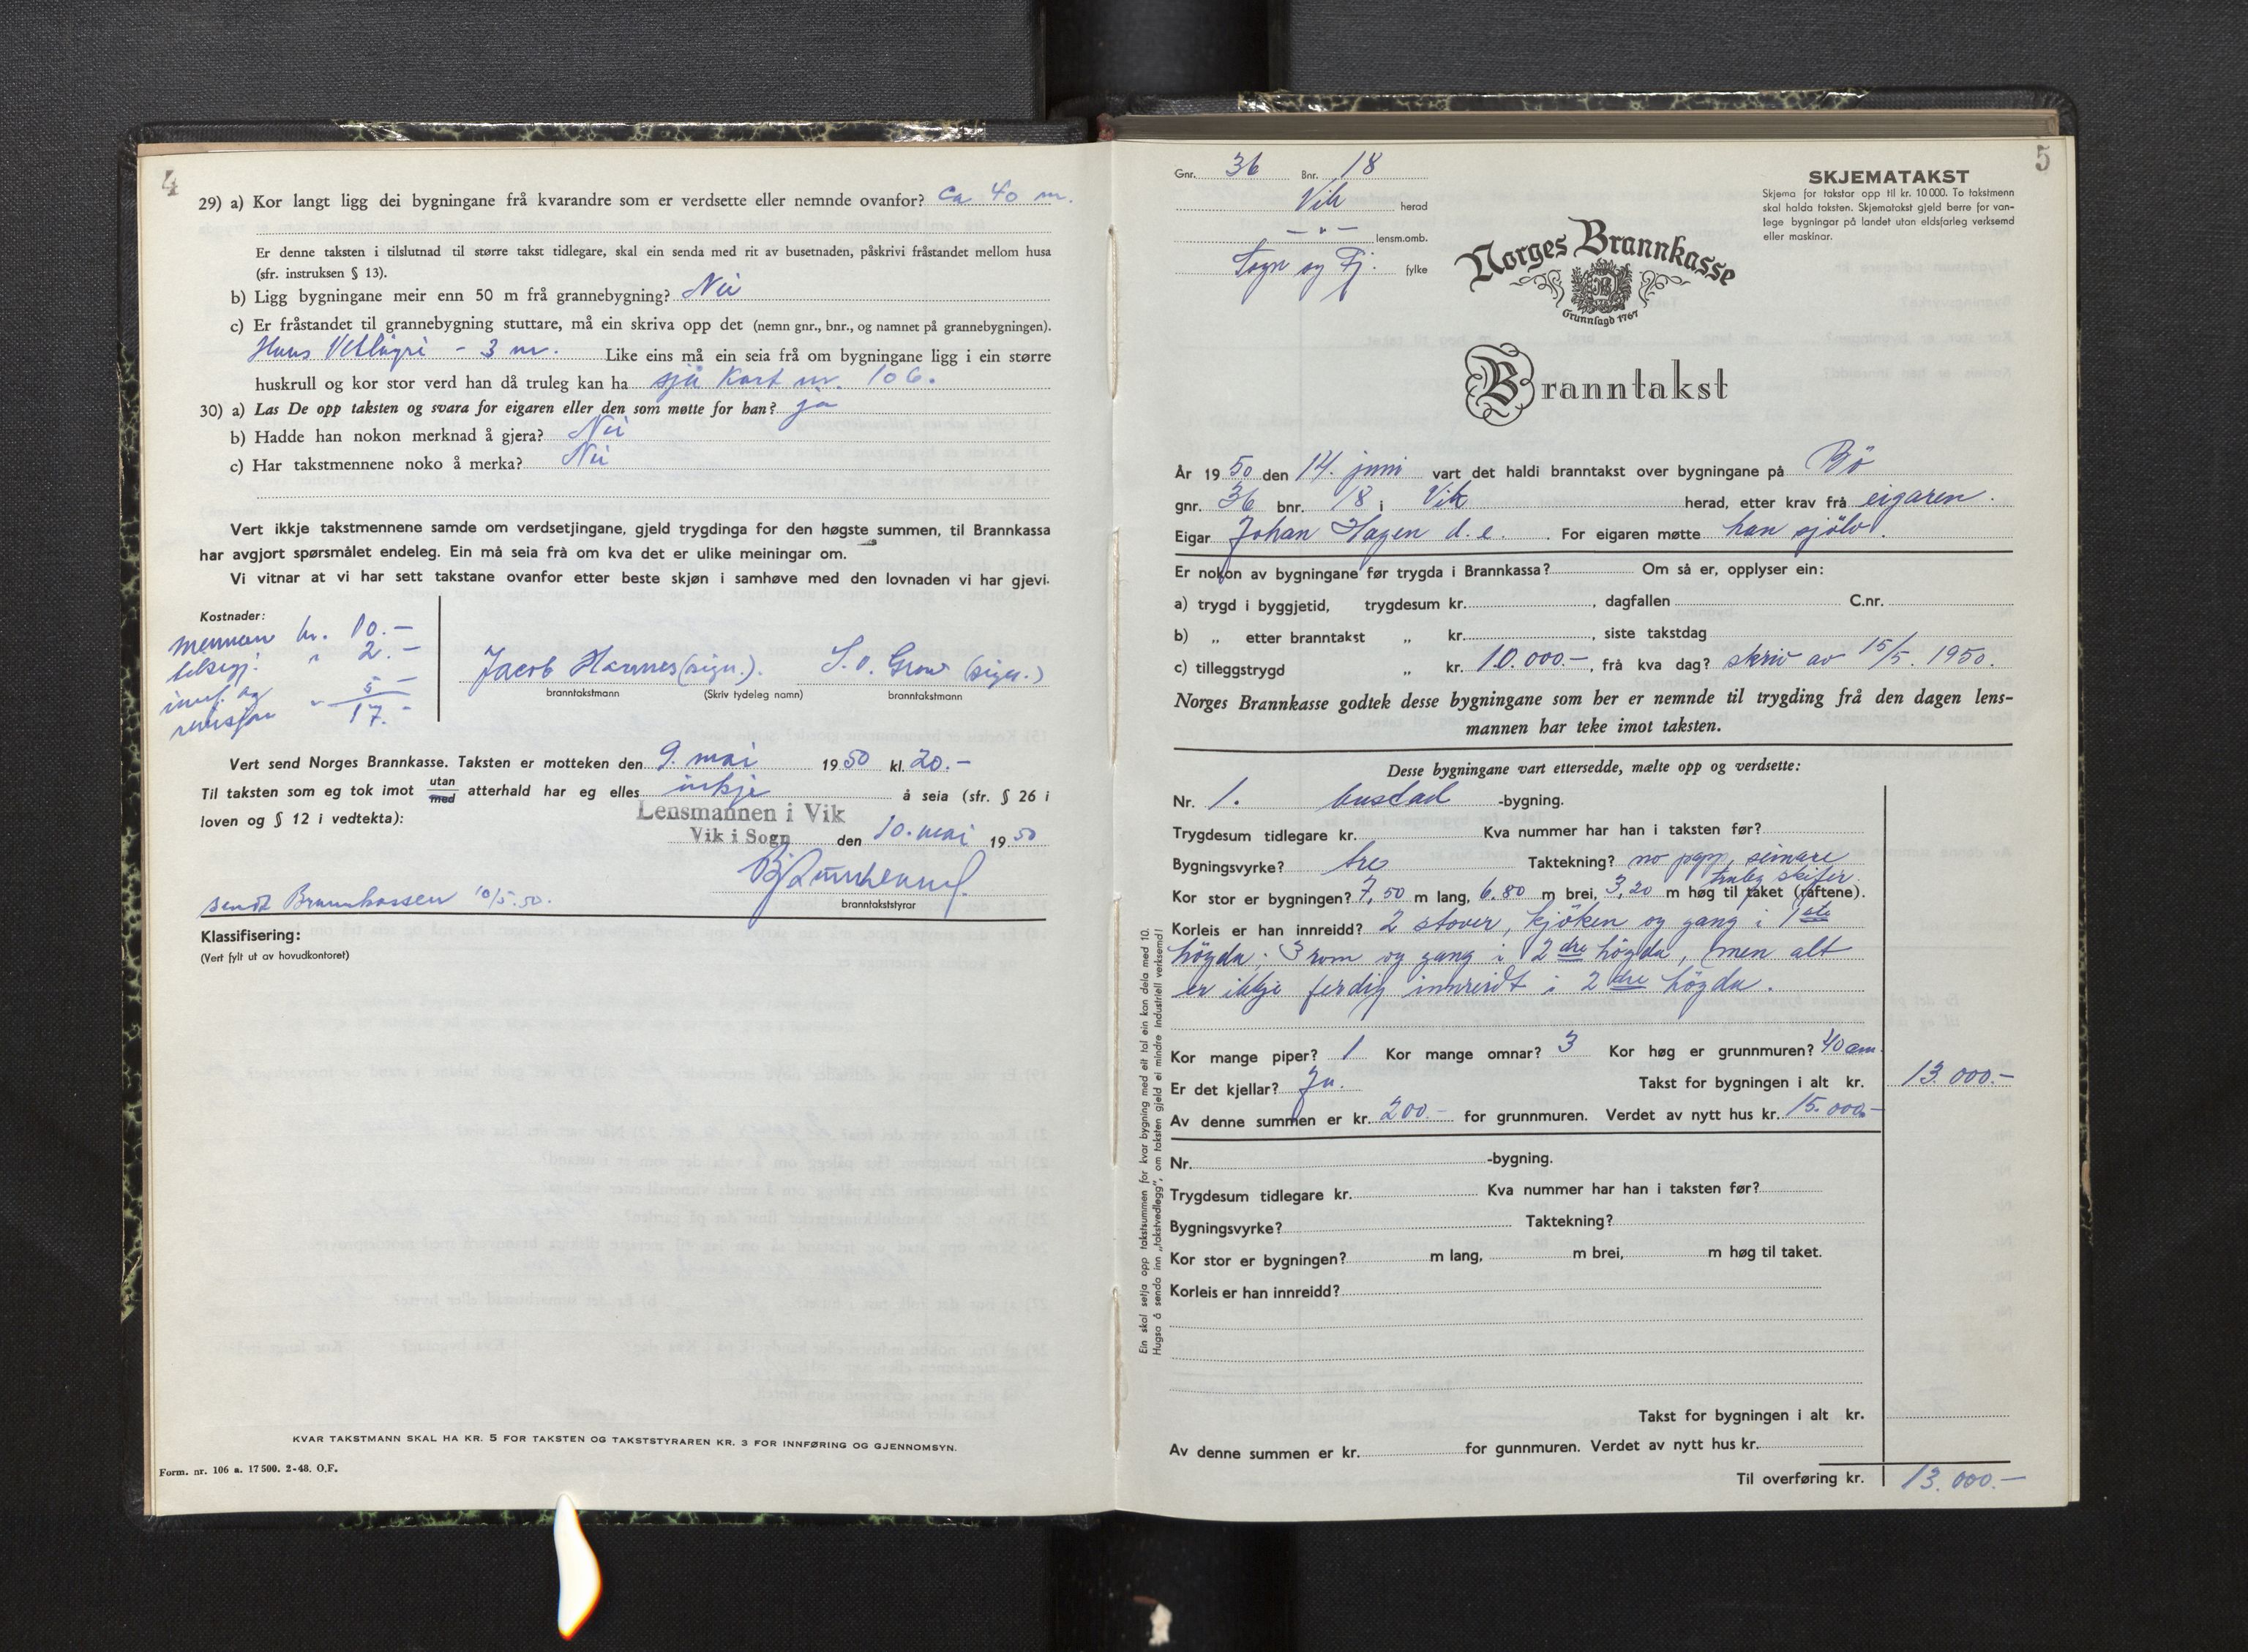 4
29) a) Kor langt ligg dei bygningane frå kvarandre som er verdsette eller nemnde ovanfor? ca 40 m.
Er denne taksten i tilslutnad til større takst tidlegare, skal ein senda med rit av busetnaden, påskrivi fråstandet mellom husa
(sfr. instruksen § 13).
b) Ligg bygningane meir enn 50 m frå grannebygning? Nei
c) Er fråstandet til grannebygning stuttare, må ein skriva opp det (nemn gnr., bnr., og namnet på grannebygningen).
Hans - 3 m. Like eins må ein seia frå om bygningane ligg i ein større
huskrull og kor stor verd han då truleg kan ha sjå Kart nr. 106.
30) a) Las De opp taksten og svara for eigaren eller den som møtte for han? ja
b) Hadde han nokon merknad å gjera? Nei
c) Har takstmennene noko å merka? Nei
Vert ikkje takstmennene samde om verdsetjingane, gjeld trygdinga for den høgste summen, til Brannkassa
har avgjort spørsmålet endeleg. Ein må seia frå om kva det er ulike meiningar om.
Vi vitnar at vi har sett takstane ovanfor etter beste skjøn i samhøve med den lovnaden vi har gjevi.
Kostnader:
mennene kr. 10.-
" 2.-
innf. og
revisjon " 5 -
17.-
Jacob Hannes (sign.). S. O. (sign.)
branntakstmann (Skriv tydeleg namn) branntakstmann
Vert send Norges Brannkasse. Taksten er motteken den 9. mai 1950 kl. 20.-
Til taksten som eg tok imot utan med atterhald har eg elles inkje å seia (sfr. § 26 i
loven og § 12 i vedtekta):
Lensmannen i Vik
Vik i Sogn den 10. mai 1950
branntakststyrar
sendt Brannkassen 10/5.50.
Klassifisering:
(Vert fylt ut av hovudkontoret)
KVAR TAKSTMANN SKAL HA KR. 5 FOR TAKSTEN OG TAKSTSTYRAREN KR. 3 FOR INNFØRING OG GJENNOMSYN.
Form. nr. 106 a. 17500. 2-48. O.F.
5
Gnr. 36 Bnr. 18
Vik herad
- " - lensm.omb.
Sogn og Fj. fylke
SKJEMATAKST
Skjema for takstar opp til kr. 10 000. To takstmenn
skal halda taksten. Skjematakst gjeld berre for van-
lege bygningar på landet utan eldsfarleg verksemd
eller maskinar.
Norges Brannkasse
Grunnlagd 1767
Branntakst
År 1950 den 14. juni vart det haldi branntakst over bygningane på Bö
gnr. 36 bnr. 18 i Vik herad, etter krav frå eigaren.
Eigar Johan Hagen d. e. For eigaren møtte han sjölv.
Er nokon av bygningane før trygda i Brannkassa? Om så er, opplyser ein:
a) trygd i byggjetid, trygdesum kr. , dagfallen C.nr.
b) „ etter branntakst „ kr. , siste takstdag
c) tilleggstrygd „ kr. 10.000.-, frå kva dag? skriv av 15/5. 1950.
Norges Brannkasse godtek desse bygningane som her er nemnde til trygding frå den dagen lens-
mannen har teke imot taksten.
Desse bygningane vart ettersedde, mælte opp og verdsette:
Nr. 1. bustad -bygning.
Trygdesum tidlegare kr. Kva nummer har han i taksten før?
Bygningsvyrke? tre Taktekning? no papp, seinare
truleg skifer.
Kor stor er bygningen? 7,50 m lang, 6.80 m brei, 3,20 m høg til taket (raftene).
Korleis er han innreidd? 2 stover, kjöken og gang i 1ste
högda; 3 rom og gang i 2dre högda, men alt
er ikkje ferdig innreidt i 2dre högda.
Kor mange piper? 1 Kor mange omnar? 3 Kor høg er grunnmuren? 40 cm.
Er det kjellar? Ja. Takst for bygningen i alt kr. 13.000.-
Av denne summen er kr. 200.- for grunnmuren. Verdet av nytt hus kr. 15.000.-
Nr. -bygning.
Trygdesum tidlegare kr. Kva nummer har han i taksten før?
Bygningsvyrke? Taktekning?
Kor stor er bygningen? m lang, m brei, m høg til taket.
Korleis er han innreidd?
Takst for bygningen i alt kr.
Av denne summen er kr. for gunnmuren. Verdet av nytt hus kr.
Til overføring kr. 13.000.-
Ein skal setja opp takstsummen for kvar bygning med eit tal ein kan dela med 10.
Hugsa å senda inn „takstvedlegg", om taksten gjeld ei mindre industriell verksemd!